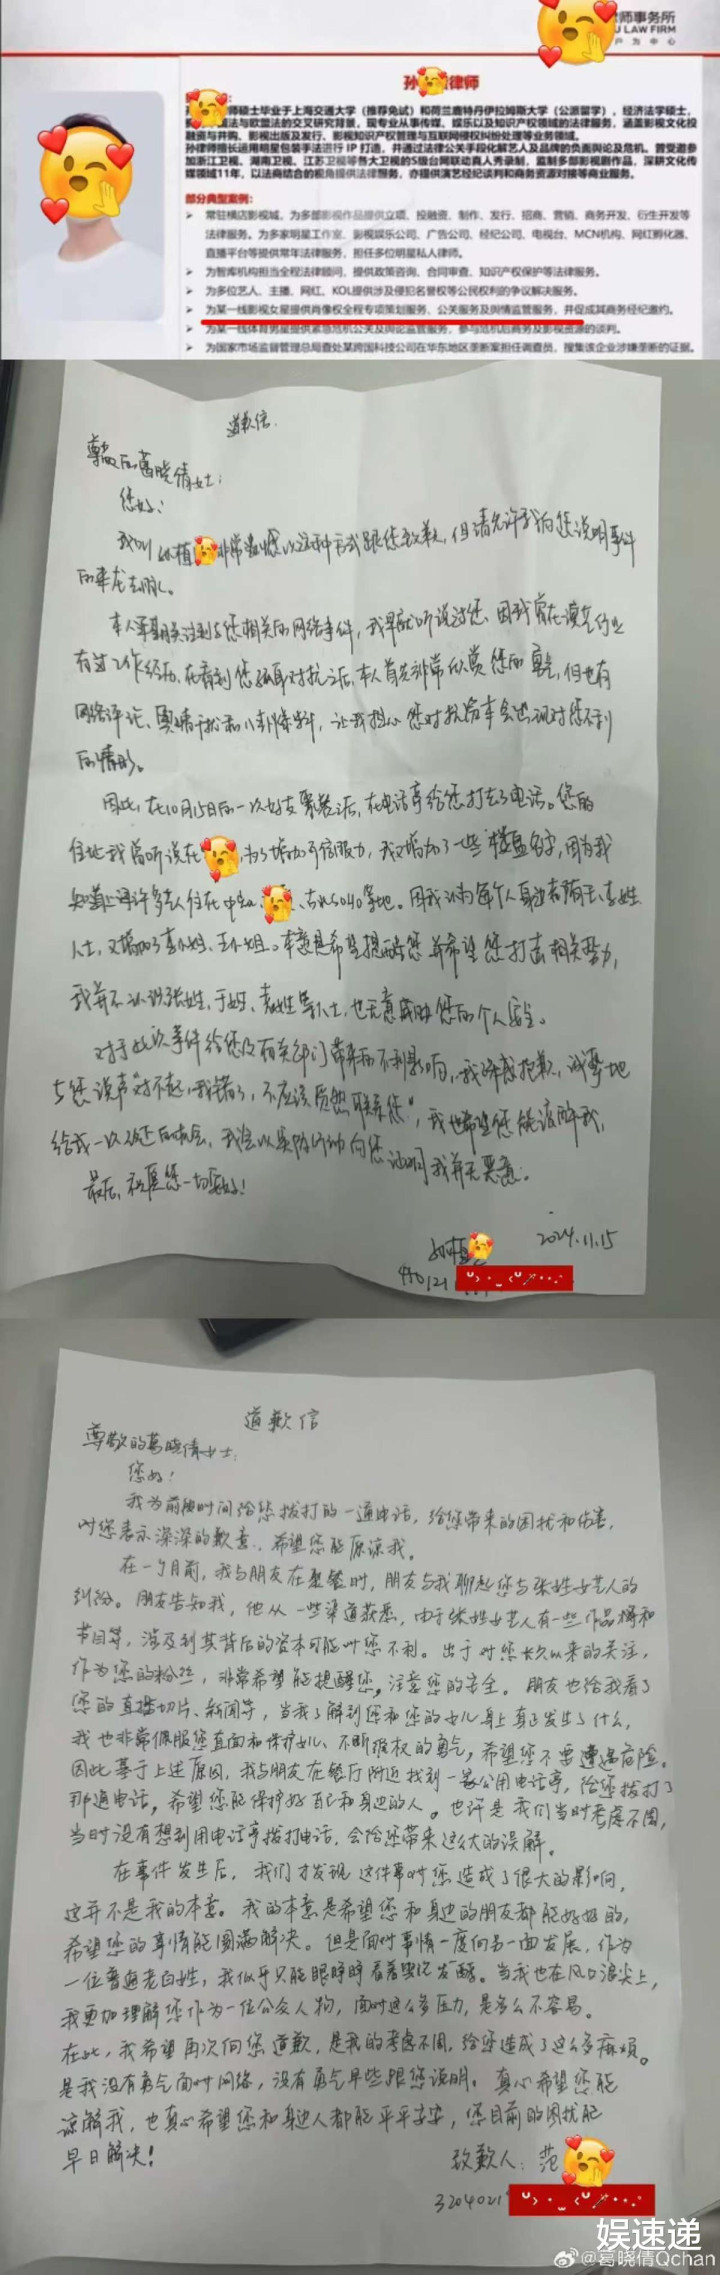 师事务所
U LAW FIRM
户为中心
孙 律师
师硕士毕业于上海交通大学（推荐免试）和荷兰鹿特丹伊拉姆斯大学（公派留学），经济法学硕士，
法与欧盟法的交叉研究背景，现专业从事传媒、娱乐以及知识产权领域的法律服务，涵盖影视文化投
融资与并购、影视出版及发行、影视知识产权管理与互联网侵权纠纷处理等业务领域。
孙律师擅长运用明星包装手法进行 IP 打造，并通过法律公关手段化解艺人及品牌的负面舆论及危机。曾受邀参
加浙江卫视、湖南卫视、江苏卫视等各大卫视的S级台网联动真人秀录制，监制多部影视剧作品，深耕文化传
媒领域11年，以法商结合的视角提供法律服务，亦提供演艺经纪谈判和商务资源对接等商业服务。
部分典型案例：
➢ 常驻横店影视城，为多部影视作品提供立项、投融资、制作、发行、招商、营销、商务开发、衍生开发等
法律服务。为多家明星工作室、影视娱乐公司、广告公司、经纪公司、电视台、MCN机构、网红孵化器、
直播平台等提供常年法律服务，担任多位明星私人律师。
➢ 为智库机构担当全程法律顾问，提供政策咨询、合同审查、知识产权保护等法律服务。
➢ 为多位艺人、主播、网红、KOL提供涉及侵犯名誉权等公民权利的争议解决服务。
➢ 为某一线影视女星提供肖像权全程专项策划服务、公关服务及舆情监管服务，并促成其商务经纪邀约。
➢ 为某一线体育男星提供紧急危机公关及舆论监管服务，参与危机后商务及影视资源的谈判。
➢ 为国家市场监督管理总局查处某跨国科技公司在华东地区垄断案担任调查员，搜集该企业涉嫌垄断的证据。
道歉信
尊敬的葛晓倩女士：
您好！
我叫 植 非常 以这种方式跟您致歉，但请允许我向您说明事件
的来龙去脉。
本人 关注到与您相关的网络事件，我早就听说过您，因我曾在演艺行业
有过工作经历，在看到您 对抗之后，本人首先非常欣赏您的勇气，但也有
网络评论、舆情干扰和八卦爆料，让我担心您对抗资本会出现对您不利
的情形。
因此，在10月15日的一次好友聚餐之后，在电话亭给您打去了电话。您的
住址我曾听说在 ，为了增加可信服力，我又增加了一些楼盘名字，因为我
知道上海许多艺人住在中 、 5040等地。因我认为每个人身边都有王、李姓
人士，又增加了李小姐、王小姐。本意是希望提醒您并希望您打击相关势力，
我并不认识张姓、于姓、袁姓等人士，也无意威胁您的个人安全。
对于此次事件给您及有关部门带来的不利影响，我深感抱歉，诚挚地
与您说声“对不起，我错了，不应该贸然联系您”，我也希望您能谅解我，
给我一次改正的机会，我会以实际行动向您证明我并无恶意。
最后，祝愿您一切安好！
植
2024.11.15
430121
道歉信
尊敬的葛晓倩女士：
您好！
我为前段时间给您拨打的一通电话，给您带来的困扰和伤害，
对您表示深深的歉意，希望您能原谅我。
在一个月前，我与朋友在聚餐时，朋友与我聊起您与张姓女艺人的
纠纷。朋友告知我，他从一些渠道获悉，由于张姓女艺人有一些作品播和
节目等，涉及到其背后的资本可能对您不利。出于对您长久以来的关注，
作为您的粉丝，非常希望能提醒您，注意您的安全。朋友也给我看了
您的直播切片、新闻等，当我了解到您和您的女儿身上真正发生了什么，
我也非常佩服您直面和保护女儿、不断维权的勇气，希望您不要遭遇危险。
因此基于上述原因，我与朋友在餐厅附近找到一家公用电话亭，给您拨打了
那通电话，希望您能保护好自己和身边的人。也许是我们当时考虑不周，
当时没有想到用电话亭拨打电话，会给您带来这么大的误解。
在事件发生后，我们才发现这件事对您造成了很大的影响，
这并不是我的本意。我的本意是希望您和身边的朋友都能好好的，
希望您的事情能圆满解决。但是面对事情一度向另一面发展，作为
一位普通老百姓，我似乎只能眼睁睁看着舆论发酵。当我也在风口浪尖上，
我更加理解您作为一位公众人物，面对这么多压力，是多么不容易。
在此，我希望再次向您道歉，是我的考虑不周，给您造成了这么多麻烦。
是我没有勇气面对网络，没有勇气早些跟您说明。真心希望您能
谅解我，也真心希望您和身边人都能平平安安，您目前的困扰能
早日解决！
致歉人：范
3204021
娱速递
@葛晓倩Qchan